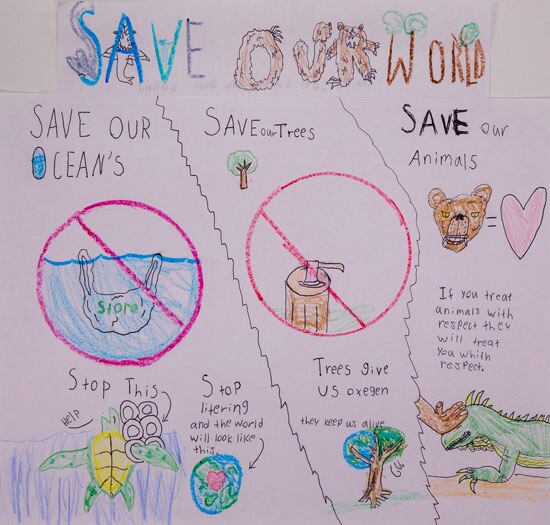 SAVE OUR WORLD
SAVE OUR
OCEAN'S
Store
Stop This
HELP
Stop
litering
and the world
will look like
this
SAVE our Trees
Trees give
us oxegen
they keep us alive
SAVE our
Animals
=
If you treat
animals with
respect they
will treat
you whith
respect.